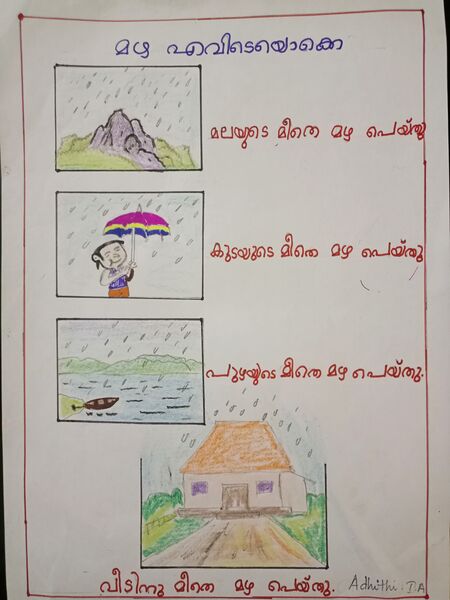 മഴ എവിടെയൊക്കെ
മലയുടെ മീതെ മഴ പെയ്തു
കുടയുടെ മീതെ മഴ പെയ്തു
പുഴയുടെ മീതെ മഴ പെയ്തു.
വീടിനു മീതെ മഴ പെയ്തു.
Adhithi. P.A